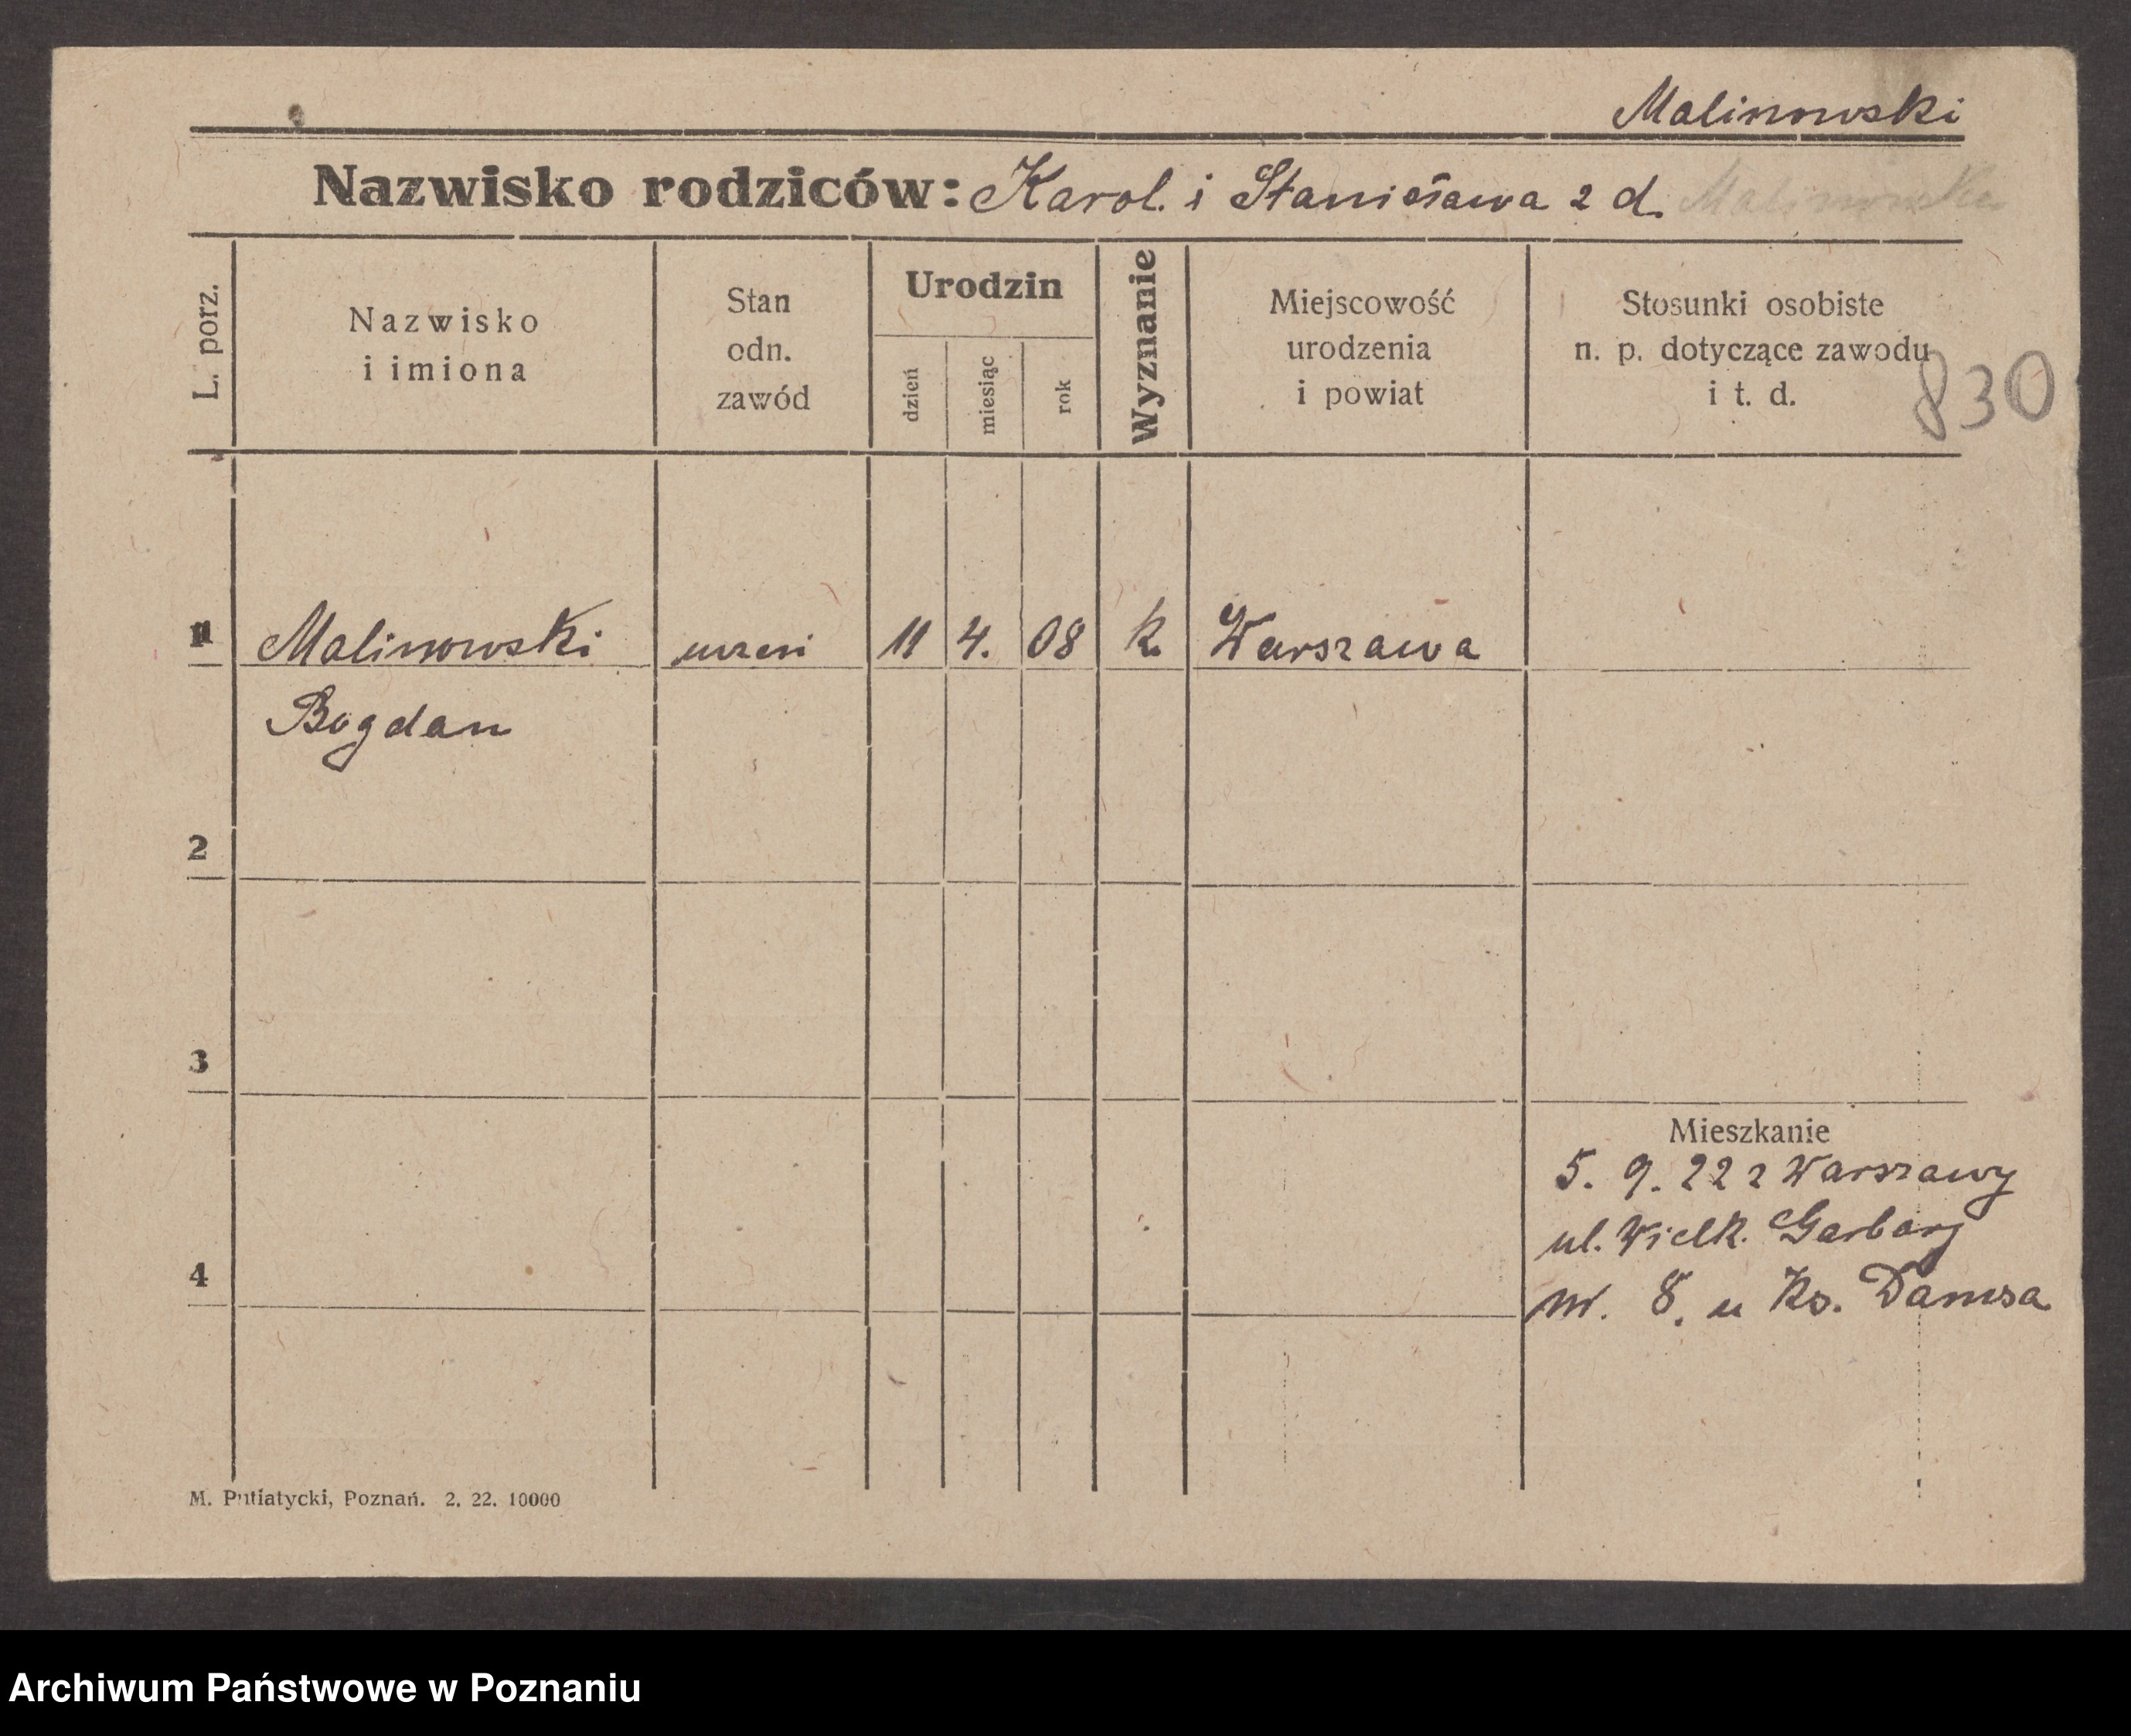 Malinowski
Nazwisko rodziców: Karol. i Stanisława z d. Malinowska
L. porz.
Nazwisko
i imiona
Stan
odn.
zawód
Urodzin
dzień
miesiąc
rok
Wyznanie
Miejscowość
urodzenia
i powiat
Stosunki osobiste
n. p. dotyczące zawodu
i t. d.
830
1 Malinowski uczeń 11 4. 08 k. Warszawa
Bogdan
2
3
4
Mieszkanie
5. 9. 22 z Warszawy
ul. Wielk. Garbary
nr. 8. u Ks.
M. Putiatycki, Poznań. 2. 22. 10000
Archiwum Państwowe w Poznaniu